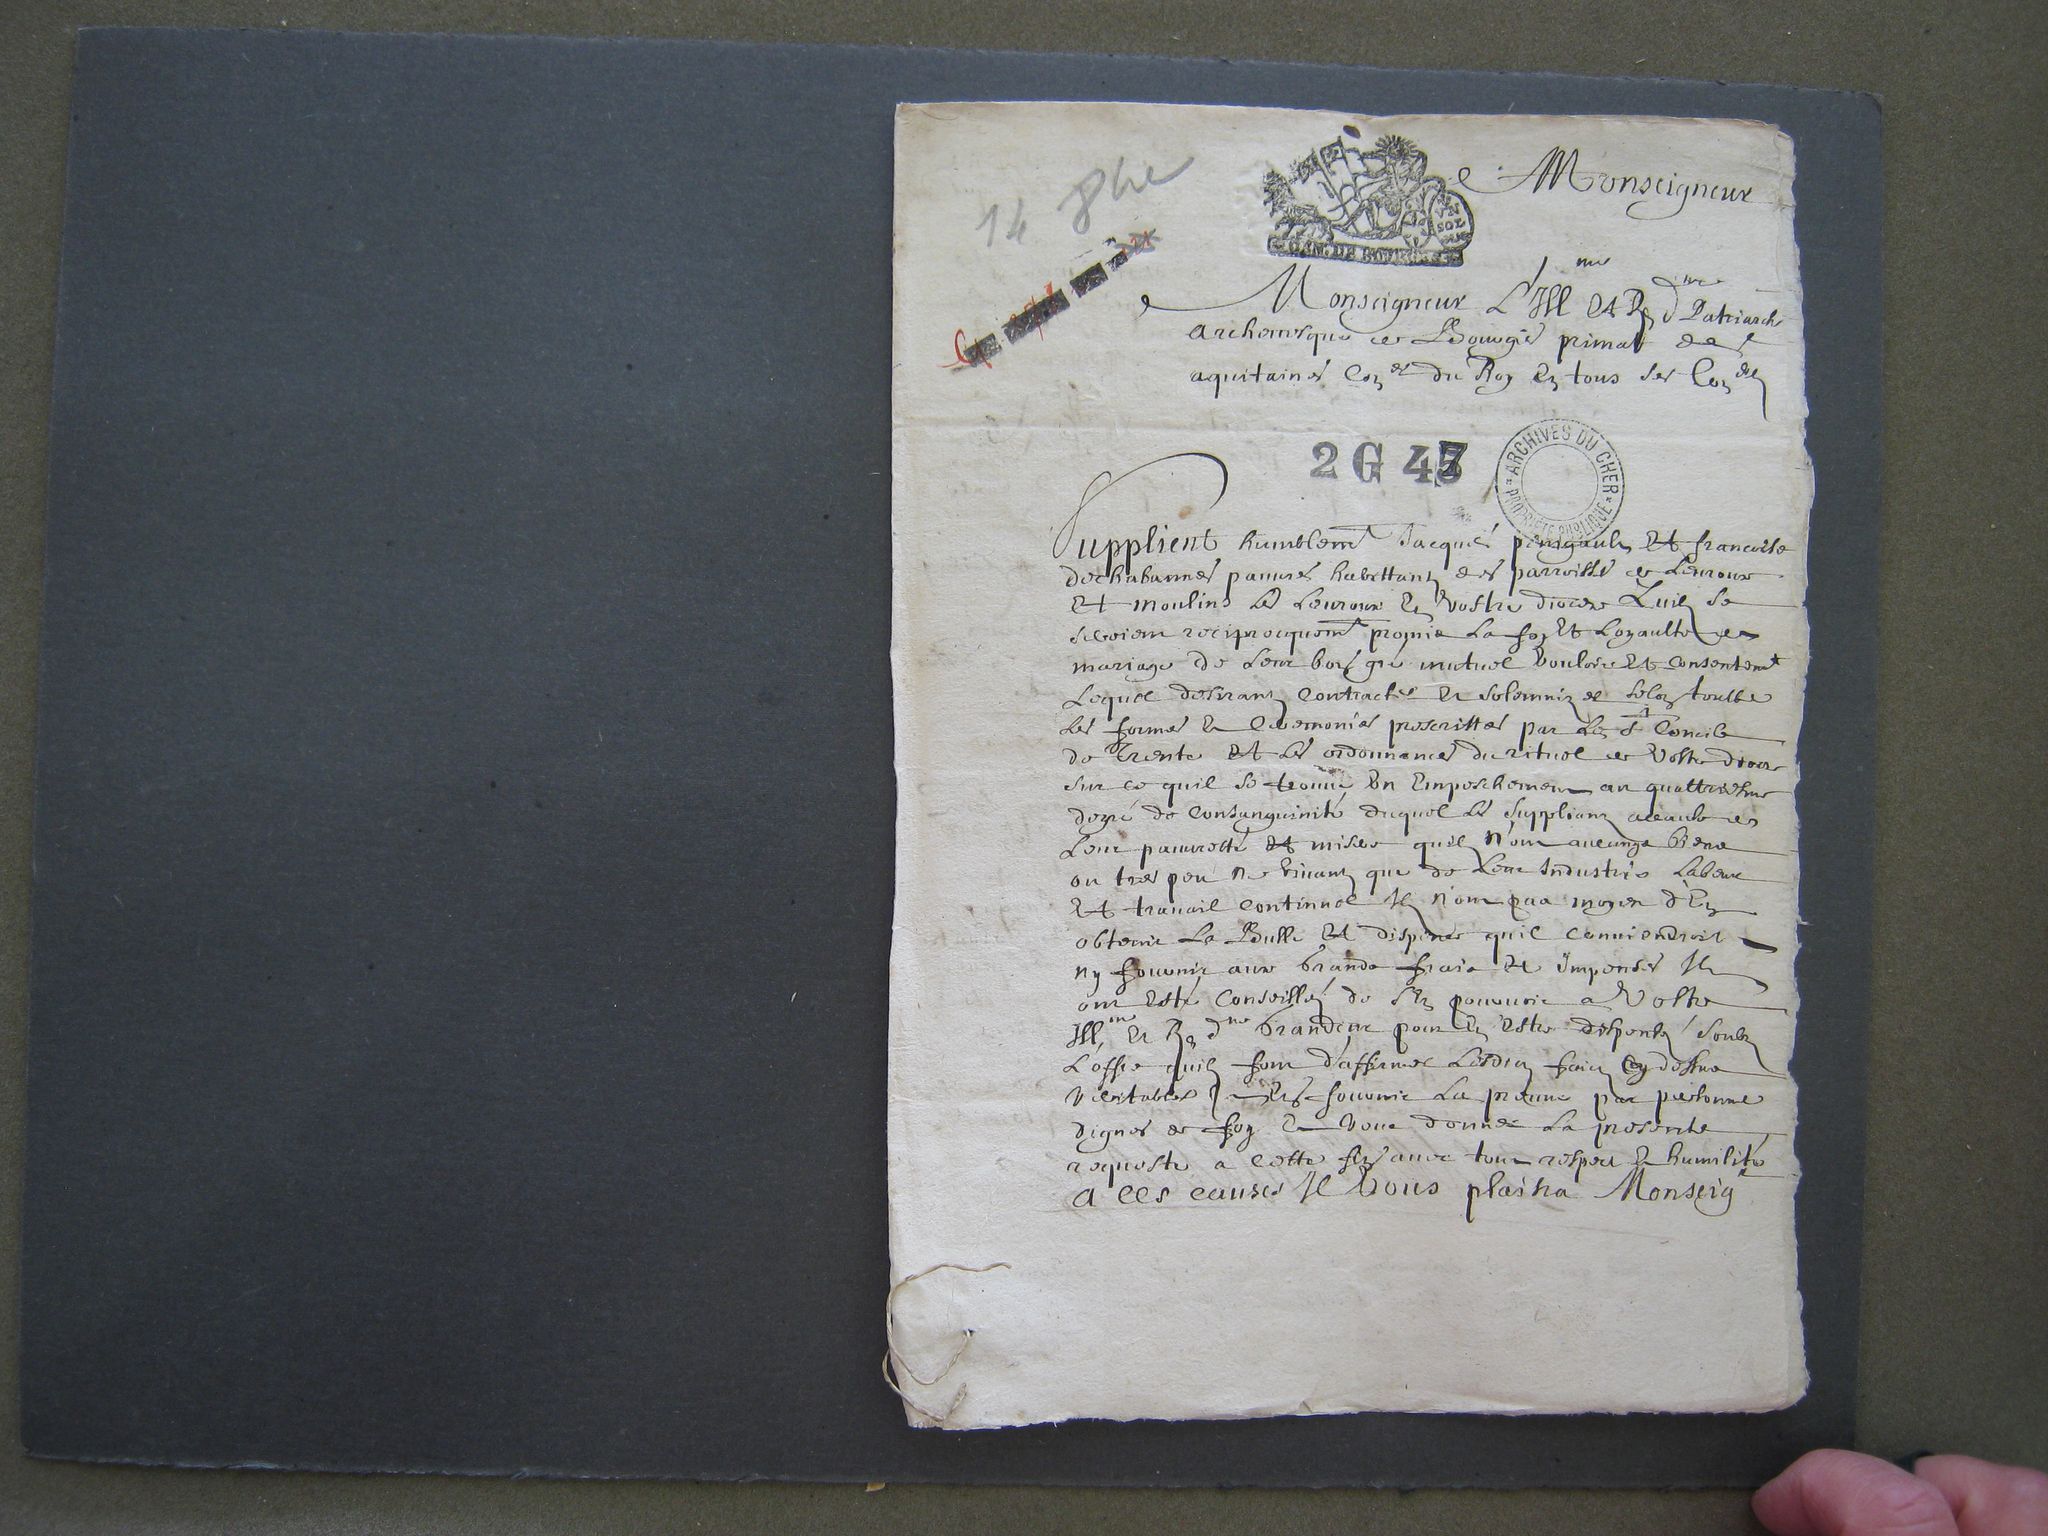 14
Monseigneur
VN SOL
GEN. DE BOURGES
Monseigneur L'Ill me Et R dme Patriarch
archevesque de Bourges primat des
aquitaines Con er du Roy En tous ses Con els
2 G 47
ARCHIVES DU CHER
PROPRIÉTÉ PUBLIQUE
Supplient humblemt Jacques pinsault Et francoise
dechabannes pauvres habittans des parroisses de Levroux
Et moulins les Levroux En Vostre diocese quils se
seroient reciproquemt promis La foy Et Loyaulté de
mariage de Leur bon gré mutuel Vouloir Et Consentemt
Lequel desirans Contracter Et solemnizer selon touttes
Les formes Et Ceremonies prescrittes par Le St Concile
de Trente Et les ordonnances du rituel de Vostre dioce
sur ce quil se trouve Un Empeschement au quattriesme
degré de Consanguinité duquel les supplians a cause de
Leur pauvreté Et misere quils N'ont aucungs biens
ou tres peu Ne Vivans que de Leur Industrie Labeur
Et travail Continuel Ils N'ont pas moyen d'En
obtenir La Bulle Et dispense quil Conviendroit
Ny fournir aux Grands frais Et Impenses Ils
ont Esté Conseillés de s'En pourvoir a Vostre
Ill me Et R dme Grandeur pour En Estre dispensés soubz
L'offre quils font d'affirmer Lesdits faits Cy dessus
Veritables Et En fournir La preuve par personnes
dignes de foy Et Vous donner La presente
requeste a Cette fin avec tout respect Et humilité
A CES causes Il Vous plaira Monseig